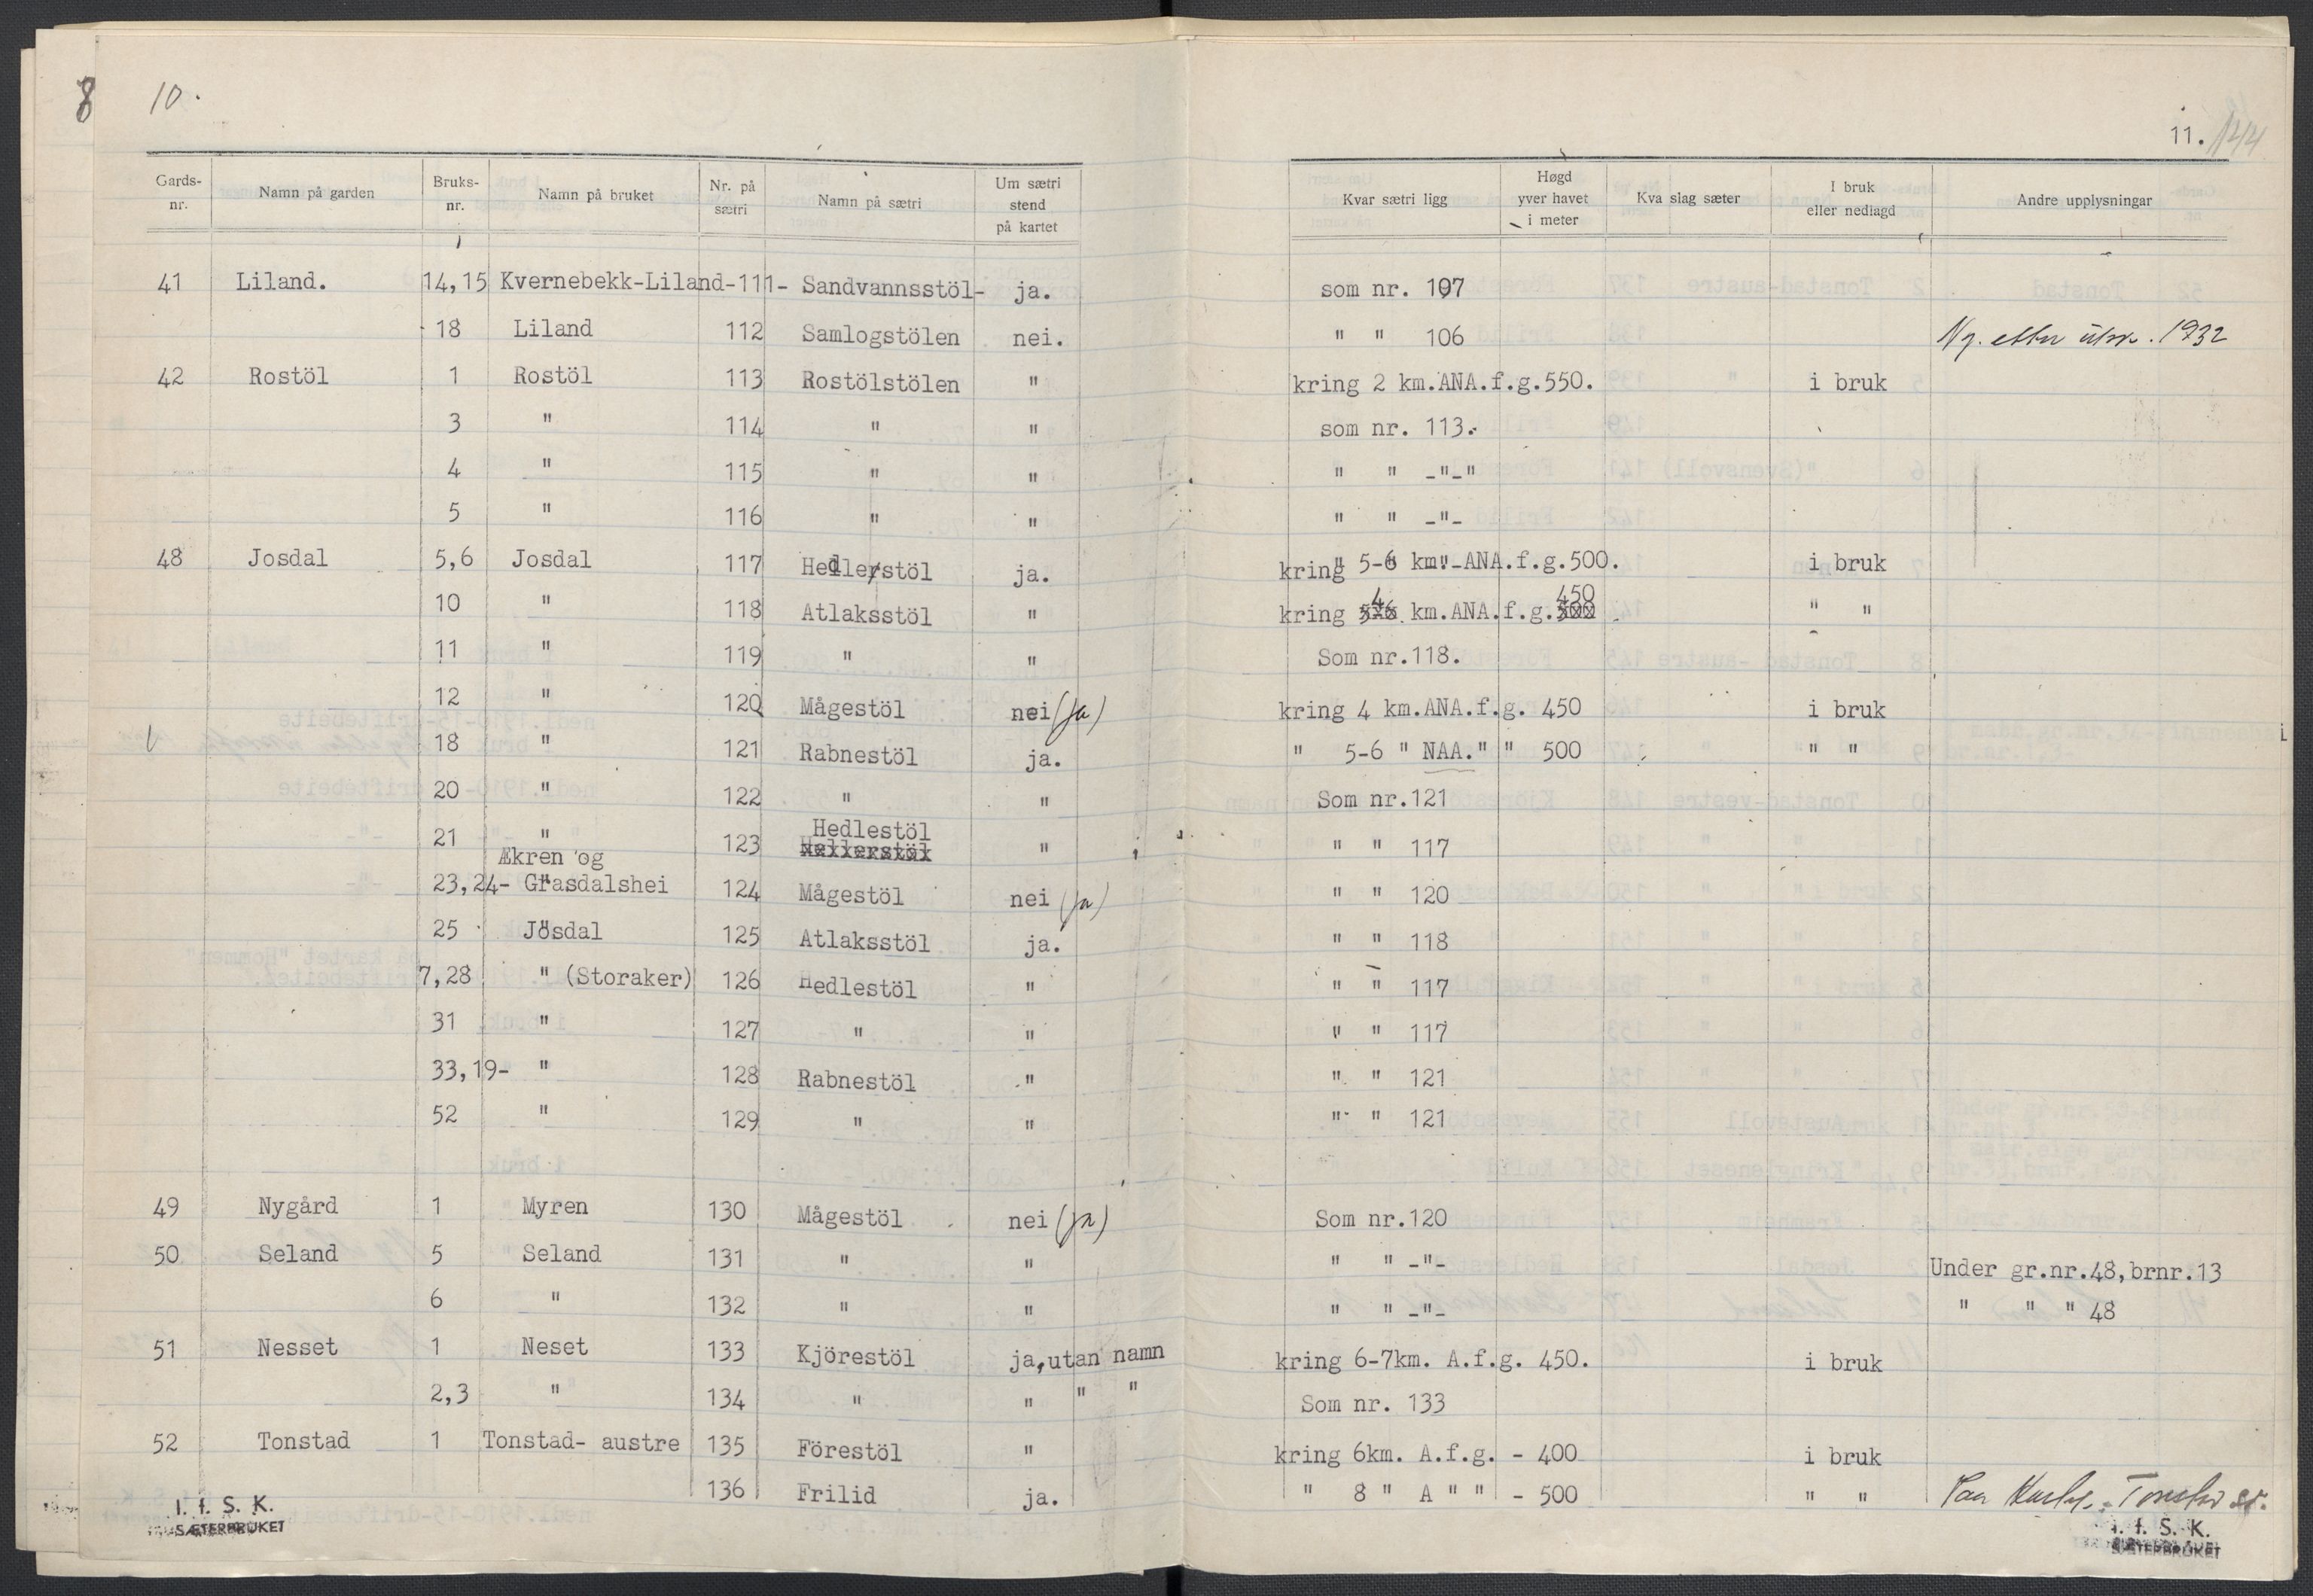 8 10.
Gards-nr. Namn på garden Bruks-nr. Namn på bruket Nr. på sætri Namn på sætri Um sætri stend på kartet
41 Liland. 14,15 Kvernebekk-Liland-111- Sandvannsstöl- ja.
18 Liland 112 Samlogstölen nei.
42 Rostöl 1 Rostöl 113 Rostölstölen "
3 " 114 " "
4 " 115 " "
5 " 116 " "
48 Josdal 5,6 Josdal 117 Hedlerstöl ja.
10 " 118 Atlaksstöl "
11 " 119 " "
12 " 120 Mågestöl nei (ja)
18 " 121 Rabnestöl ja.
20 " 122 " "
Hedlestöl
21 " 123 Hellerstöl "
Ækren og
23,24- Grasdalshei 124 Mågestöl nei (ja)
25 Josdal 125 Atlaksstöl ja.
7,28 " (Storaker) 126 Hedlestöl "
31 " 127 " "
33,19- " 128 Rabnestöl "
52 " 129 " "
49 Nygård 1 Myren 130 Mågestöl nei (ja)
50 Seland 5 Seland 131 " "
6 " 132 " "
51 Nesset 1 Neset 133 Kjörestöl ja, utan namn
2,3 " 134 " " " "
52 Tonstad 1 Tonstad- austre 135 Förestöl "
136 Frilid ja.
I. f. S. K.
SÆTERBRUKET
11. 144
Kvar sætri ligg Høgd yver havet i meter Kva slag sæter I bruk eller nedlagd Andre upplysningar
som nr. 107
" " 106 etter 1932
kring 2 km.ANA.f.g.550. i bruk
som nr. 113.
" " -"-"
" " -"-
kring 5-6 km.-ANA.f.g.500. i bruk
4 450
kring 5-6 km.ANA.f.g.500 " "
Som nr.118.
kring 4 km.ANA.f.g. 450 i bruk
" 5-6 " NAA." " 500 " "
Som nr.121
" " 117
" " 120
" " 118
" " 117
" " 117
" " 121
" " 121
Som nr.120
" " -"- Under gr.nr.48,brnr.13
" " -"- " " " 48
kring 6-7km. A.f.g. 450. i bruk
Som nr. 133
kring 6km. A.f.g. - 400 i bruk
" 8 " A " " - 500 " "
I. f. S. K.
SÆTERBRUKET